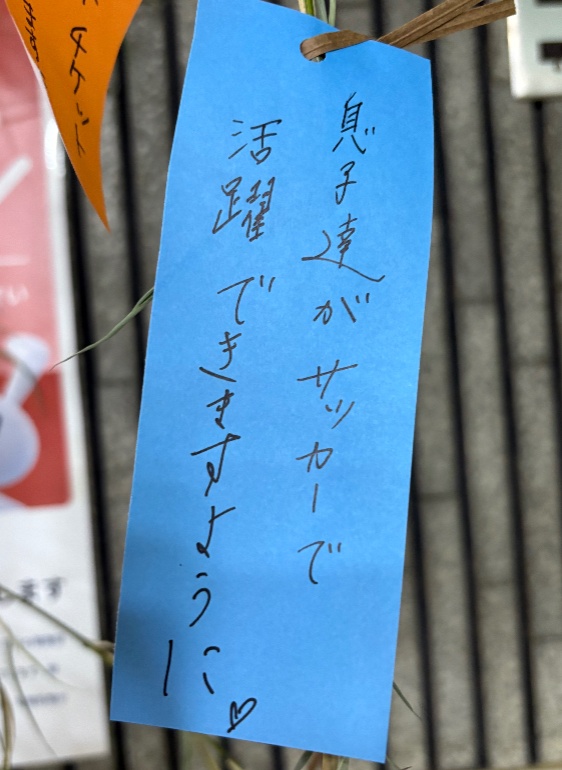 息子達がサッカーで
活躍できますように♡
チケット
ます